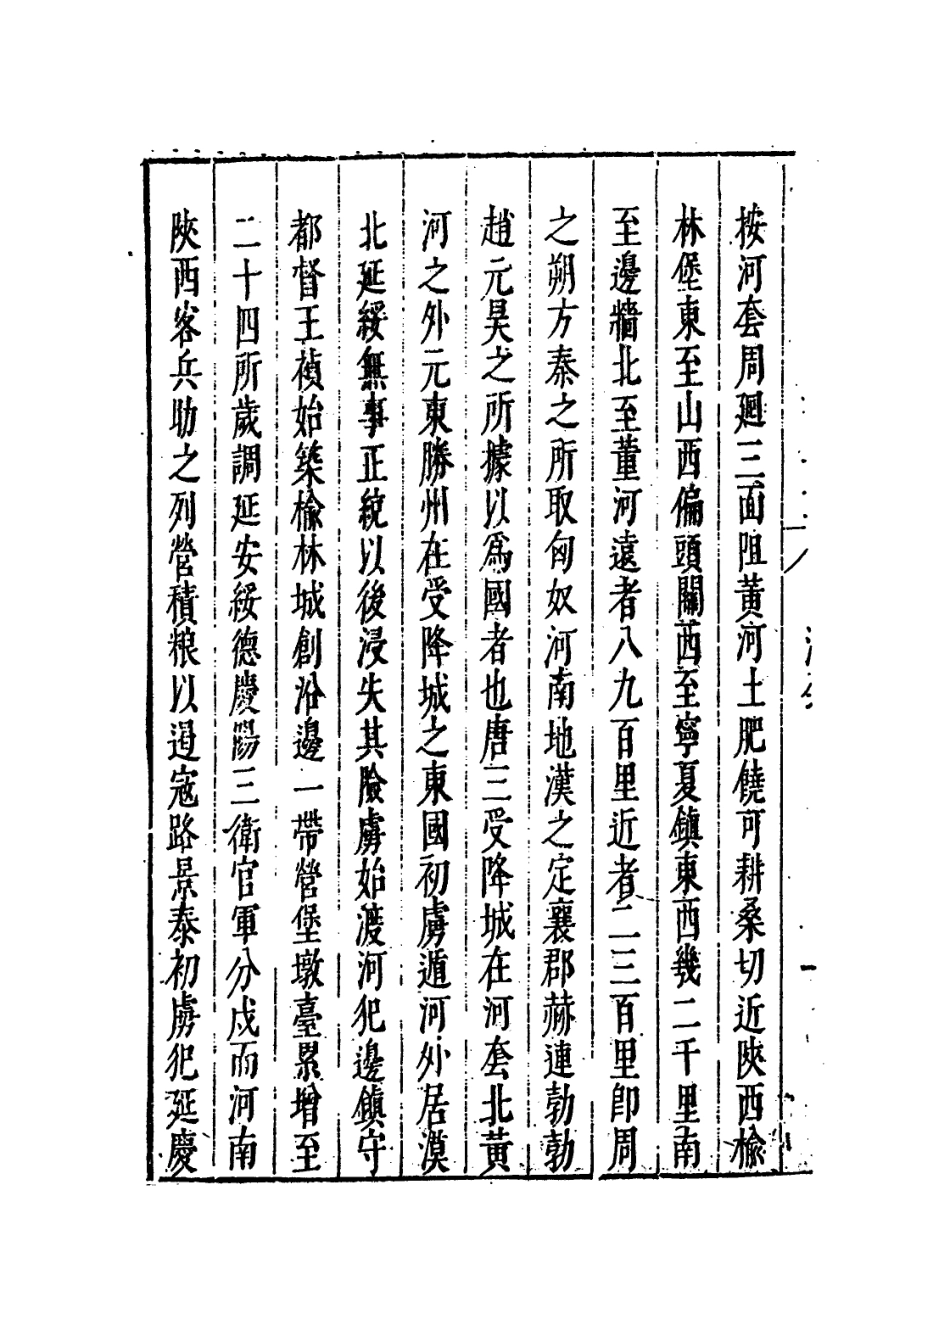 按河套周廻三面阻黃河土肥饒可耕桑切近陝西榆
林堡東至山西偏頭關西至寧夏鎮東西幾二千里南
至邊牆北至黃河遠者八九百里近者二三百里卽周
之朔方秦之所取匈奴河南地漢之定襄郡赫連勃勃
趙元昊之所據以爲國者也唐三受降城在河套北黃
河之外元東勝州在受降城之東國初虜遁河外居漠
北延綏無事正統以後浸失其險虜始渡河犯邊鎮守
都督王禎始築榆林城創沿邊一帶營堡墩臺累增至
二十四所歲調延安綏德慶陽三衛官軍分戍而河南
陝西客兵助之列營積粮以遏寇路景泰初虜犯延慶